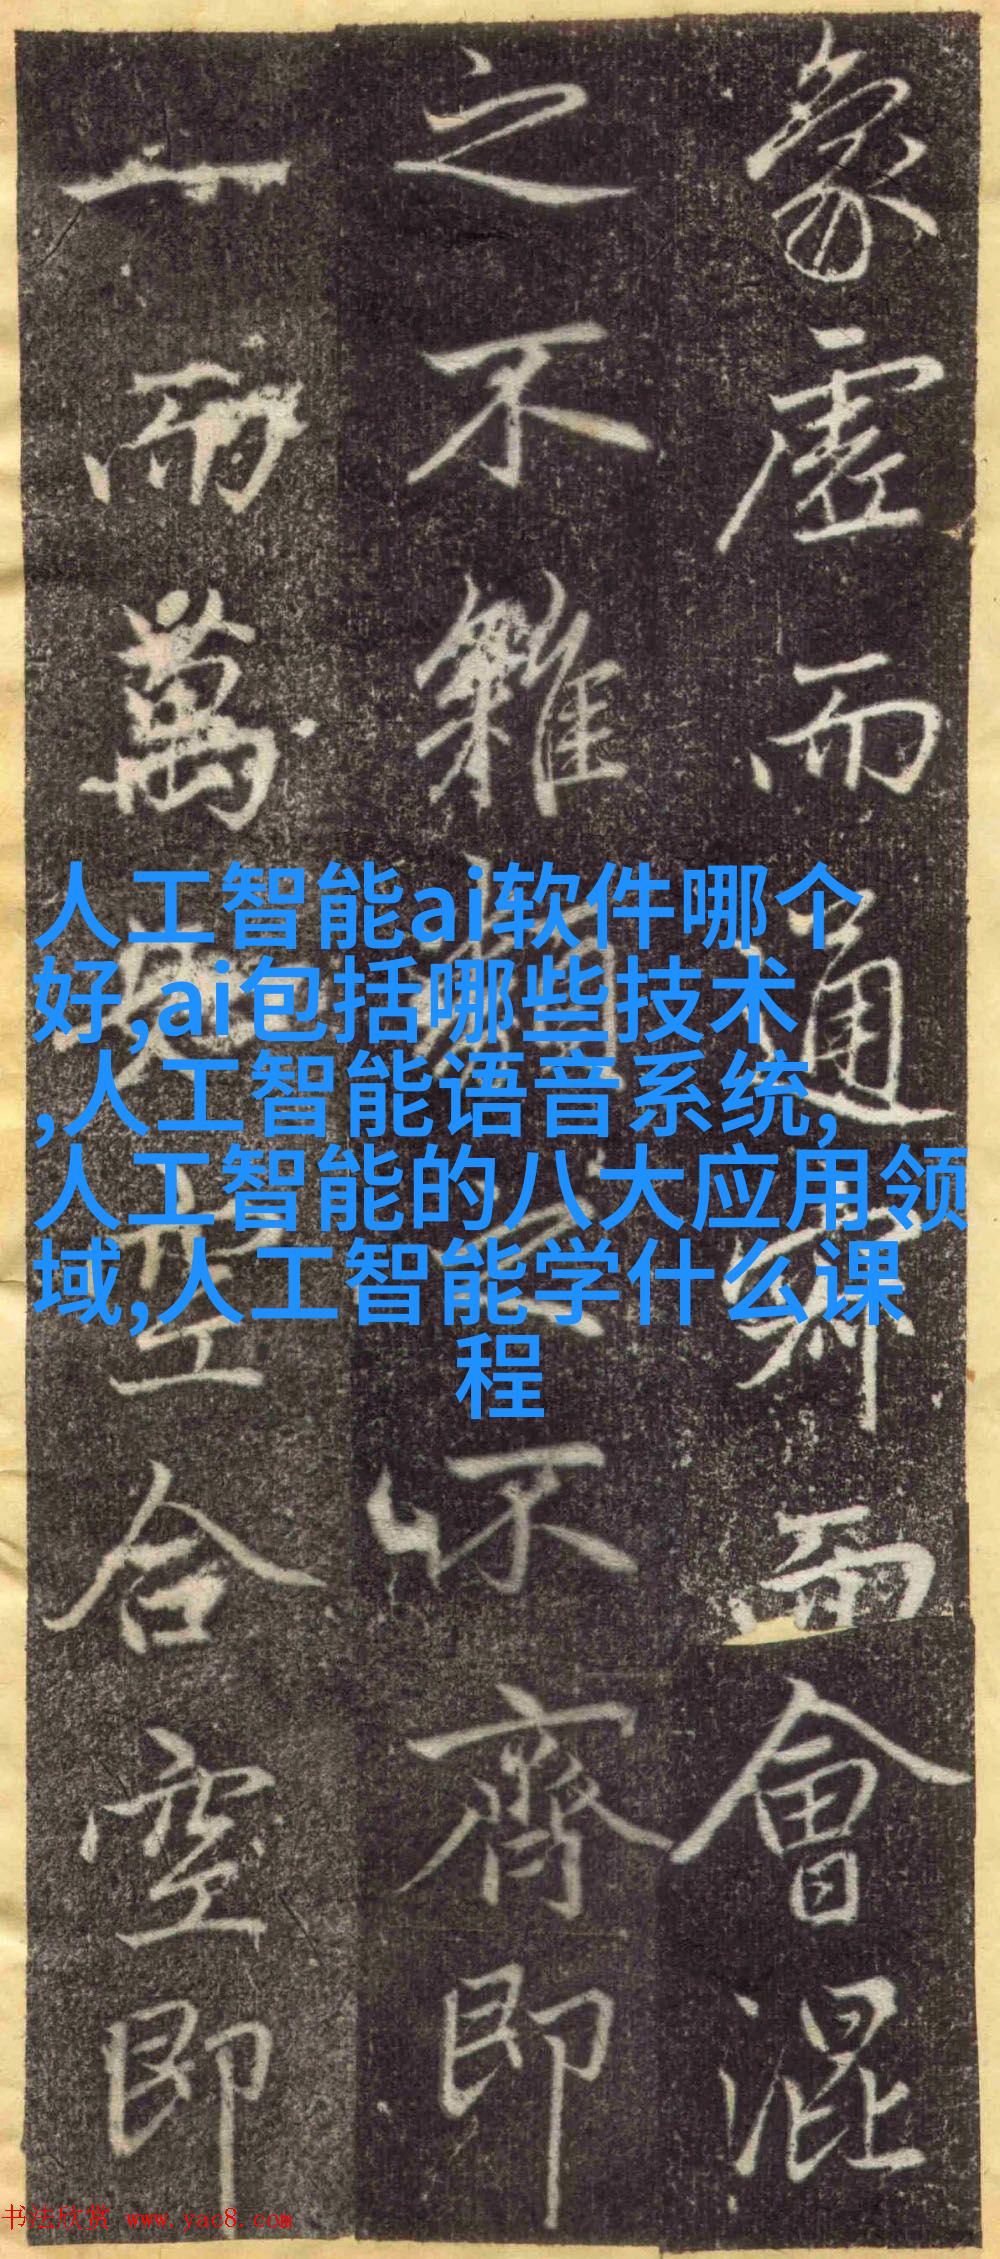 象虛而通辯而會混
之不雜
不齊即
一而萬
空合空即
人工智能ai软件哪个
好,ai包括哪些技术
,人工智能语音系统,
人工智能的八大应用领
域,人工智能学什么课
程
书法欣赏 www.yac8.com